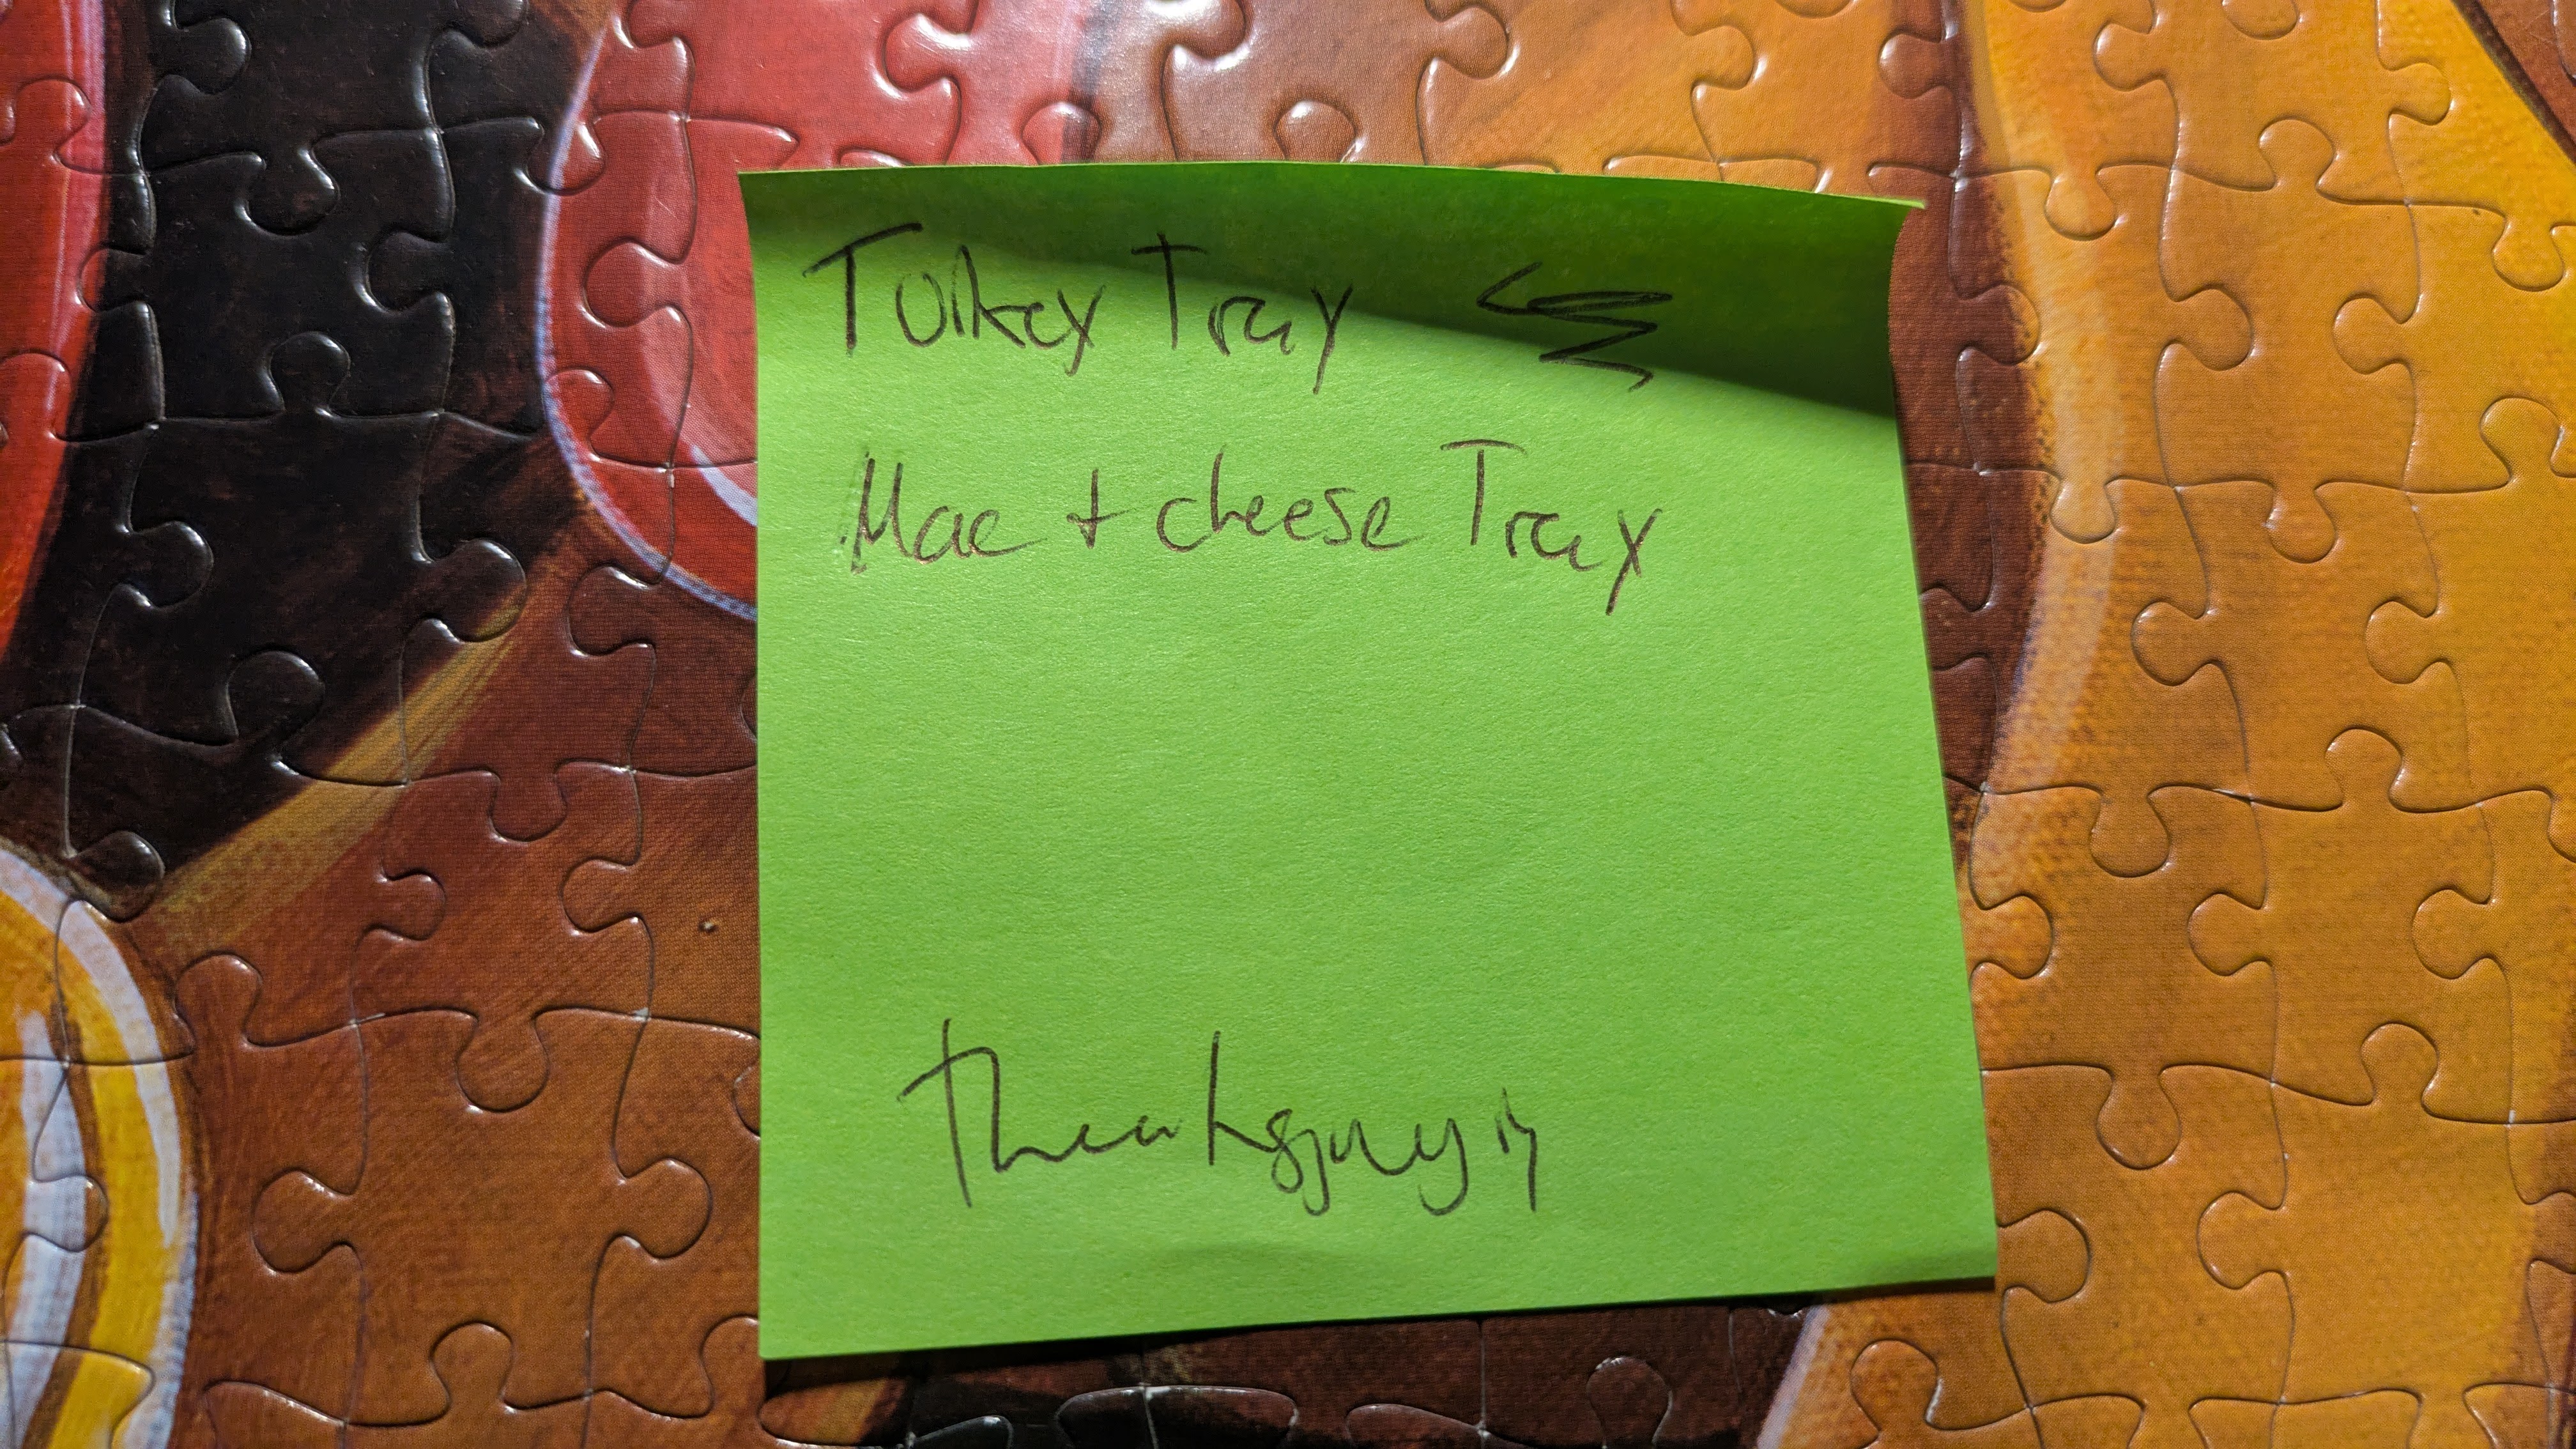 Turkey Tray
Mac + cheese Tray
Thanksgiving